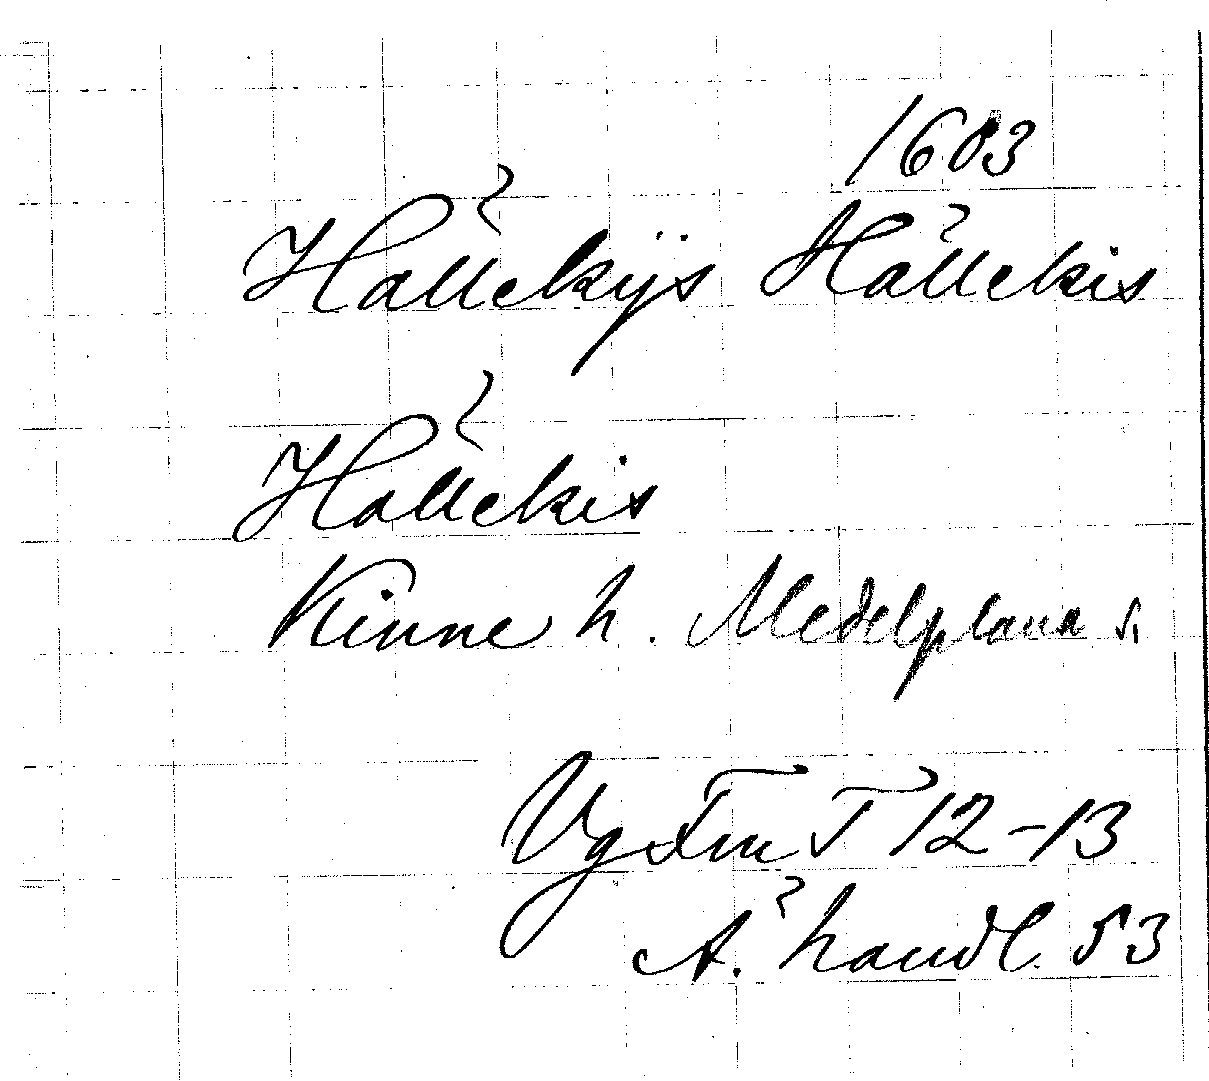 1603
Hällekijs Hällekis
Hällekis
Kinne h. Medelplana s.
Vg Fm T 12-13
Ä. handl. 53